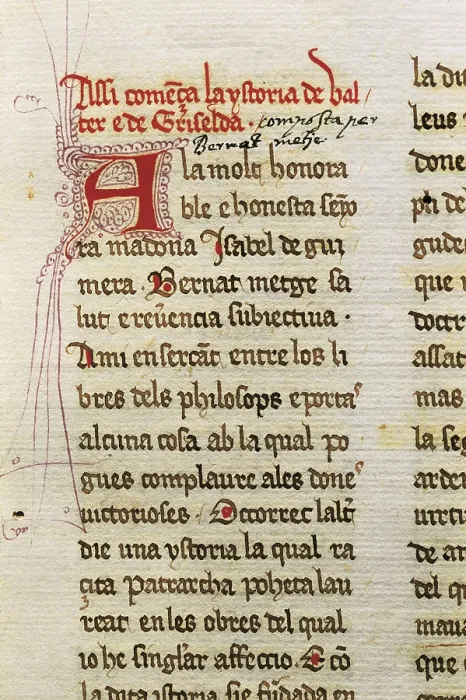 Assi comēça la ystoria de Val
ter e de Griselda. composta per
Bernat metje
A la molt honora
ble e honesta seyo
ra madona Isabel de gui
mera. Bernat metge sa
lut e reuēencia subiectiua.
Ami en sercāt entre los li
bres dels philosops e poetaˢ
alcuna cosa ab la qual po
gues complaure a les doneˢ
uictorioses. Occorrec laltr̄
die una ystoria la qual ra
cita Patrarcha poheta lau
reat en les obres del qual
io he singl'ar affeccio. E cō
la dita istoria sie fūdada en
la di
leus
done
ph de
gude
que
doctr
assat
mas
la seg
arden
uirtu
de ar
del q
maua
que